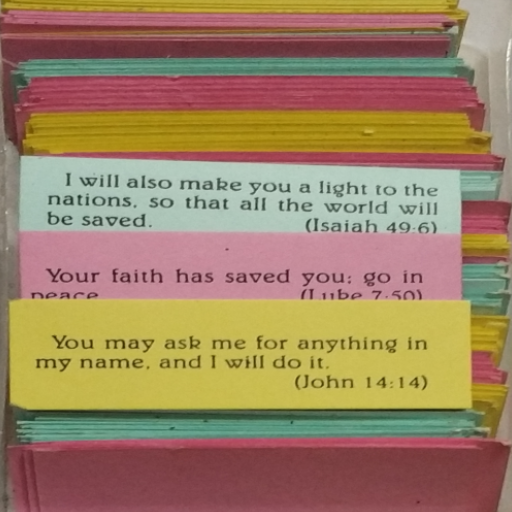 I will also make you a light to the
nations, so that all the world will
be saved. (Isaiah 49:6)
Your faith has saved you; go in
peace (Luke 7:50)
You may ask me for anything in
my name, and I will do it.
(John 14:14)